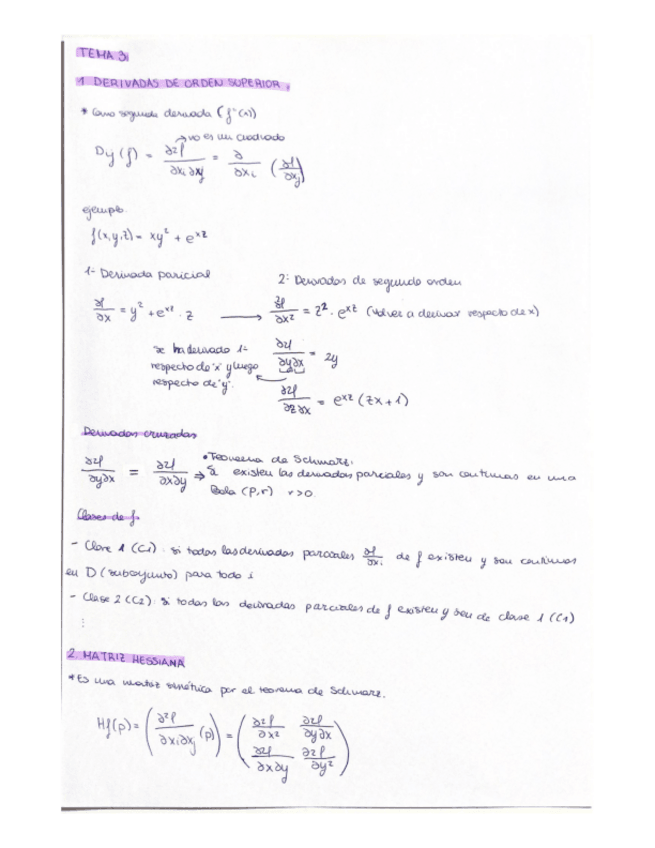 TEMA 3
1 DERIVADAS DE ORDEN SUPERIOR.
* Como segunda derivada (f''(x))
→ no es un cuadrado
Dij (f) = ∂²f/∂xi∂xj = ∂/∂xi (∂f/∂xj)
ejemplo.
f(x,y,z) = xy² + e^xz
1- Derivada paricial
2: Derivadas de segundo orden
∂f/∂x = y² + e^xz · z → ∂²f/∂x² = z² · e^xz (volver a derivar respecto de x)
se ha derivado 1-
respecto de 'x' y luego
respecto de 'y'.
∂²f/∂y∂x = 2y
∂²f/∂z∂x = e^xz (zx + 1)
Derivadas cruzadas
• Teorema de Schwarz.
∂²f/∂y∂x = ∂²f/∂x∂y → Si existen las derivadas parciales y son continuas en una
Bola (P,r) r>0
Clases de f
- Clase 1 (C1): si todas las derivadas parciales ∂f/∂xi de f existen y son continuas
en D (subconjunto) para todo i
- Clase 2 (C2): si todas las derivadas parciales de f existen y son de clase 1 (C1)
⋮
2. MATRIZ HESSIANA
* Es una matriz simétrica por el teorema de Schwarz.
Hf(p) = (∂²f/∂xi∂xj (p)) = (∂²f/∂x² ∂²f/∂y∂x
∂²f/∂x∂y ∂²f/∂y²)